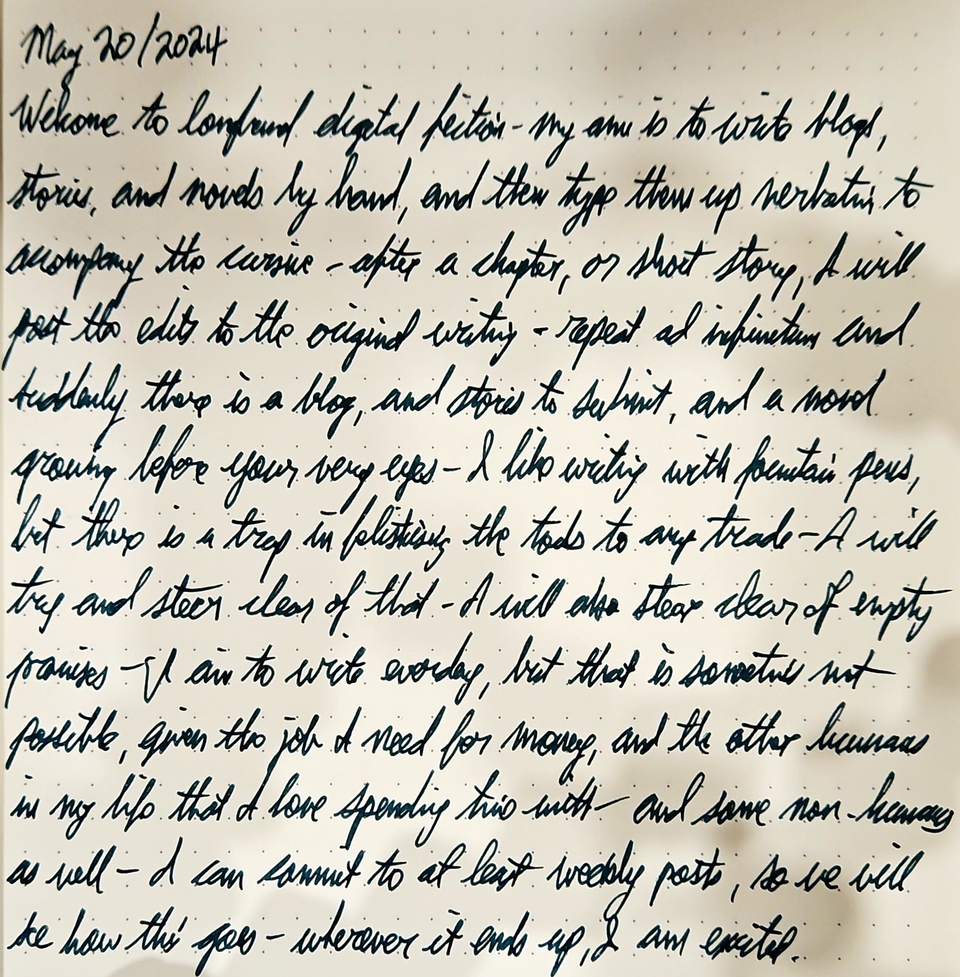 May 20/2024
Welcome to longhand digital fiction - my aim is to write blogs,
stories, and novels by hand, and then type them up verbatim to
accompany the cursive - after a chapter, or short story, I will
post the edits to the original writing - repeat ad infinitum and
suddenly there is a blog, and stories to submit, and a novel
growing before your very eyes - I like writing with fountain pens,
but there is a trap in fetishising the tools to any trade - I will
try and steer clear of that - I will also steer clear of empty
promises - I aim to write everday, but that is sometimes not
possible, given the job I need for money, and the other humans
in my life that I love spending time with - and some non-humans
as well - I can commit to at least weekly posts, so we will
see how this goes - wherever it ends up, I am excited.